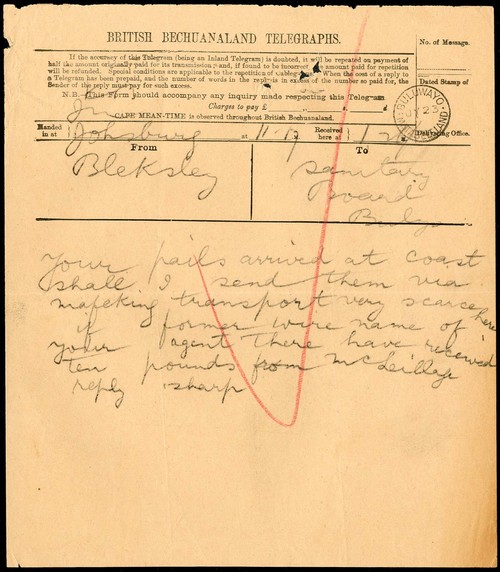 BRITISH BECHUANALAND TELEGRAPHS.
No. of Message.
If the accuracy of this Telegram (being an Inland Telegram) is doubted, it will be repeated on payment of
half the amount originally paid for its transmission; and, if found to be incorrect the amount paid for repetition
will be refunded. Special conditions are applicable to the repetition of Cablegrams. When the cost of a reply to
a Telegram has been prepaid, and the number of words in the reply is in excess of the number so paid for, the
Sender of the reply must pay for such excess.
Dated Stamp of
N.B.—This Form should accompany any inquiry made respecting this Telegram.
Charges to pay £
CAPE MEAN-TIME is observed throughout British Bechuanaland.
BULUWAYO
Handed in at
Johsburg
at
Received here at
Delivering Office.
From
To
Bleksley
Sanitary
Board
your pails arrived at coast
shall I send them via
mafeking transport very scarce here
if former wire name of
your agent there have received
ten pounds from
reply sharp